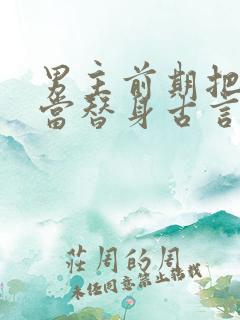 男主前期把
當替身古言
莊周的周
未经同意禁止转载